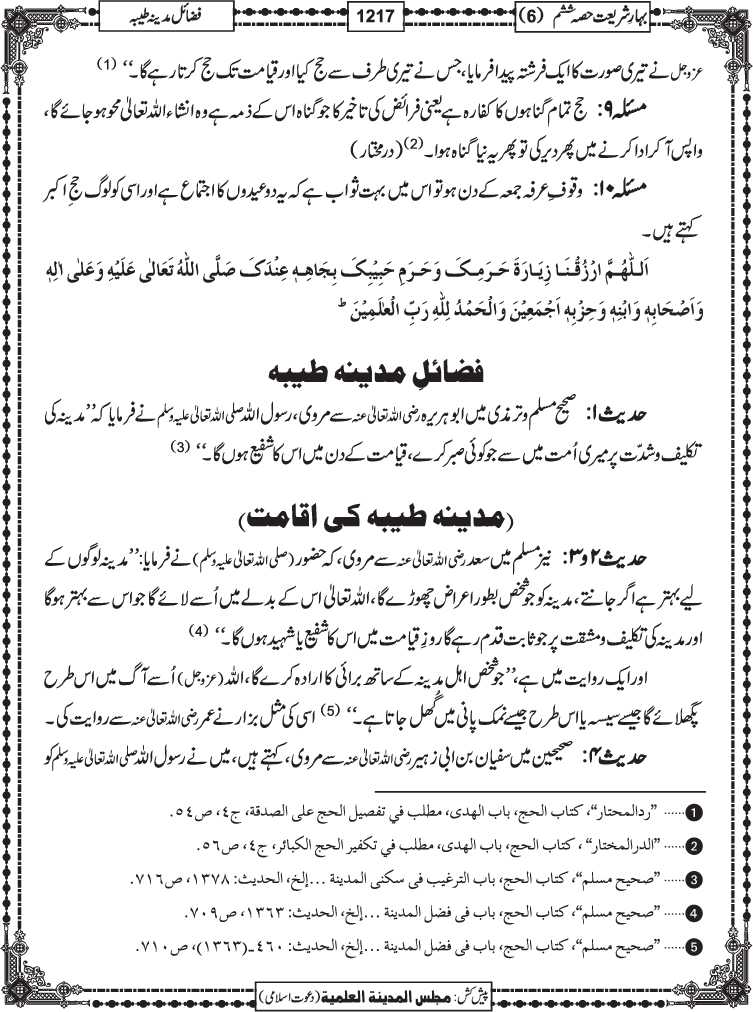 بہارِ شریعت حصہ ششم (6)
1217
فضائل مدینہ طیبہ
عزوجل نے تیری صورت کا ایک فرشتہ پیدا فرمایا، جس نے تیری طرف سے حج کیا اور قیامت تک حج کرتا رہے گا۔‘‘ (1)
مسئلہ ۹: حج تمام گناہوں کا کفارہ ہے یعنی فرائض کی تاخیر کا جو گناہ اس کے ذمہ ہے وہ انشاء اللہ تعالیٰ محو ہو جائے گا،
واپس آکر ادا کرنے میں پھر دیر کی تو پھر یہ نیا گناہ ہوا۔(2) (درمختار)
مسئلہ ۱۰: وقوفِ عرفہ جمعہ کے دن ہو تو اس میں بہت ثواب ہے کہ یہ دو عیدوں کا اجتماع ہے اور اسی کو لوگ حج اکبر
کہتے ہیں۔
اَللّٰهُمَّ ارْزُقْنَا زِيَارَةَ حَرَمِکَ وَحَرَمِ حَبِيْبِکَ بِجَاهِهٖ عِنْدَکَ صَلَّى اللهُ تَعَالٰى عَلَيْهِ وَعَلٰى اٰلِهٖ
وَاَصْحَابِهٖ وَابْنِهٖ وَحِزْبِهٖ اَجْمَعِيْنَ وَالْحَمْدُ لِلّٰهِ رَبِّ الْعٰلَمِيْنَ ؕ
فضائلِ مدینہ طیبہ
حدیث ۱: صحیح مسلم و ترمذی میں ابوہریرہ رضی اللہ تعالیٰ عنہ سے مروی، رسول اللہ صلی اللہ تعالیٰ علیہ وسلم نے فرمایا کہ ’’مدینہ کی
تکلیف و شدّت پر میری اُمت میں سے جو کوئی صبر کرے، قیامت کے دن میں اس کا شفیع ہوں گا۔‘‘ (3)
(مدینہ طیبہ کی اقامت)
حدیث ۲ و ۳: نیز مسلم میں سعد رضی اللہ تعالیٰ عنہ سے مروی، کہ حضور (صلی اللہ تعالیٰ علیہ وسلم) نے فرمایا: ’’مدینہ لوگوں کے
لیے بہتر ہے اگر جانتے، مدینہ کو جو شخص بطور اعراض چھوڑے گا، اللہ تعالیٰ اس کے بدلے میں اُسے لائے گا جو اس سے بہتر ہوگا
اور مدینہ کی تکلیف و مشقت پر جو ثابت قدم رہے گا روزِ قیامت میں اس کا شفیع یا شہید ہوں گا۔‘‘ (4)
اور ایک روایت میں ہے، ’’جو شخص اہل مدینہ کے ساتھ برائی کا ارادہ کرے گا، اللہ (عزوجل) اُسے آگ میں اس طرح
پگھلائے گا جیسے سیسہ یا اس طرح جیسے نمک پانی میں گُھل جاتا ہے۔‘‘ (5) اسی کی مثل بزار نے عمر رضی اللہ تعالیٰ عنہ سے روایت کی۔
حدیث ۴: صحیحین میں سفیان بن ابی زہیر رضی اللہ تعالیٰ عنہ سے مروی، کہتے ہیں، میں نے رسول اللہ صلی اللہ تعالیٰ علیہ وسلم کو
❶...... ”ردالمحتار“، کتاب الحج، باب الهدی، مطلب في تفصیل الحج علی الصدقة، ج٤، ص٥٤.
❷...... ”الدرالمختار“ ، کتاب الحج، باب الهدی، مطلب في تکفیر الحج الکبائر، ج٤، ص٥٦.
❸...... ”صحیح مسلم“، کتاب الحج، باب الترغیب فی سکنی المدینة ...إلخ، الحدیث: ١٣٧٨، ص٧١٦.
❹...... ”صحیح مسلم“، کتاب الحج، باب فی فضل المدینة ...إلخ، الحدیث: ١٣٦٣، ص٧٠٩.
❺...... ”صحیح مسلم“، کتاب الحج، باب فی فضل المدینة ...إلخ، الحدیث: ٤٦٠ـ(١٣٦٣)، ص٧١٠.
پیش کش: مجلس المدینة العلمیة (دعوت اسلامی)